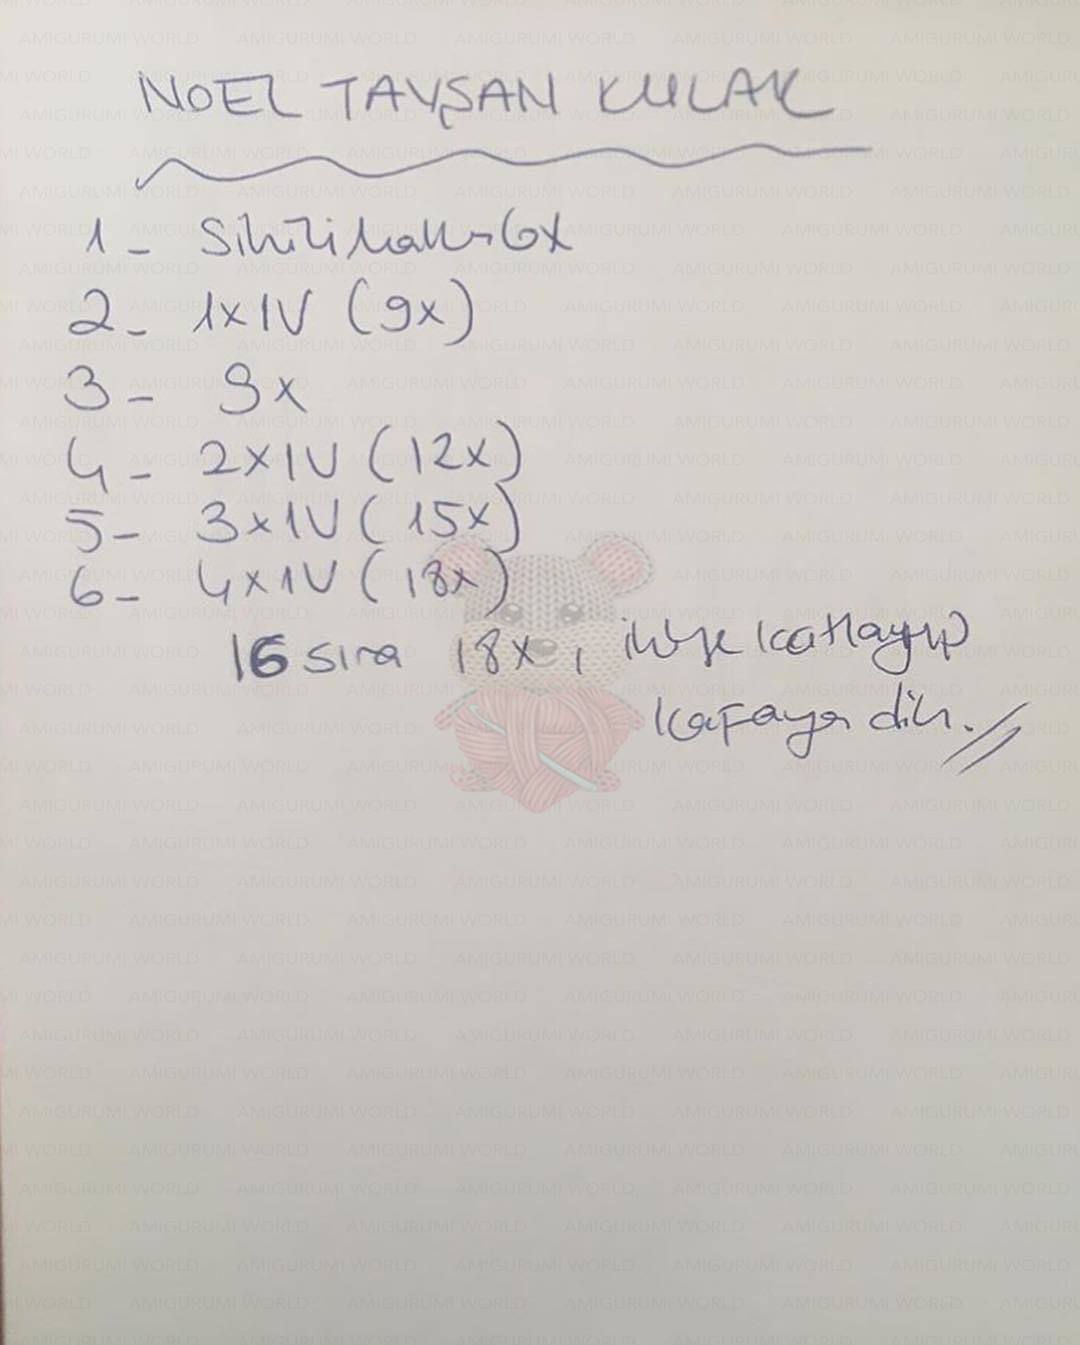 NOEL TAVŞAN KULAK
1- Sihirli halka 6x
2- 1x1V (9x)
3- 9x
4- 2x1V (12x)
5- 3x1V (15x)
6- 4x1V (18x)
16 sıra 18x, ikiye katlayıp
kafaya dik.
AMIGURUMI WORLD